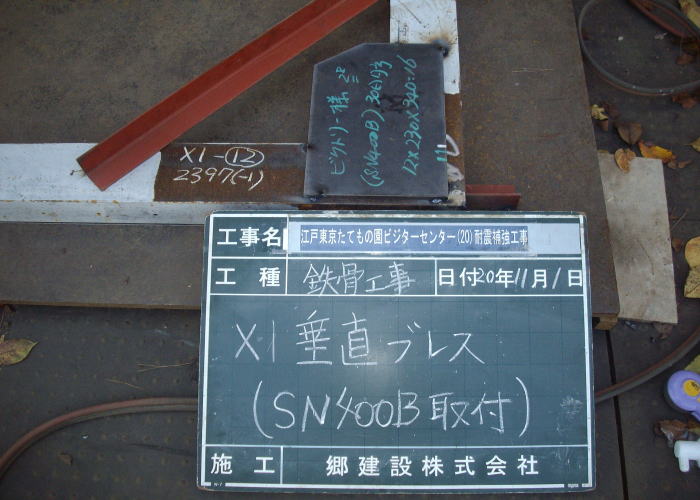 ビクトリー様 28
(SN400B)
12×230×340=16
X1-⑫
2397(-1)
工事名 江戸東京たてもの園ビジターセンター(20)耐震補強工事
工種 鉄骨工事 日付20年11月1日
X1垂直ブレス
(SN400B取付)
施工 郷建設株式会社